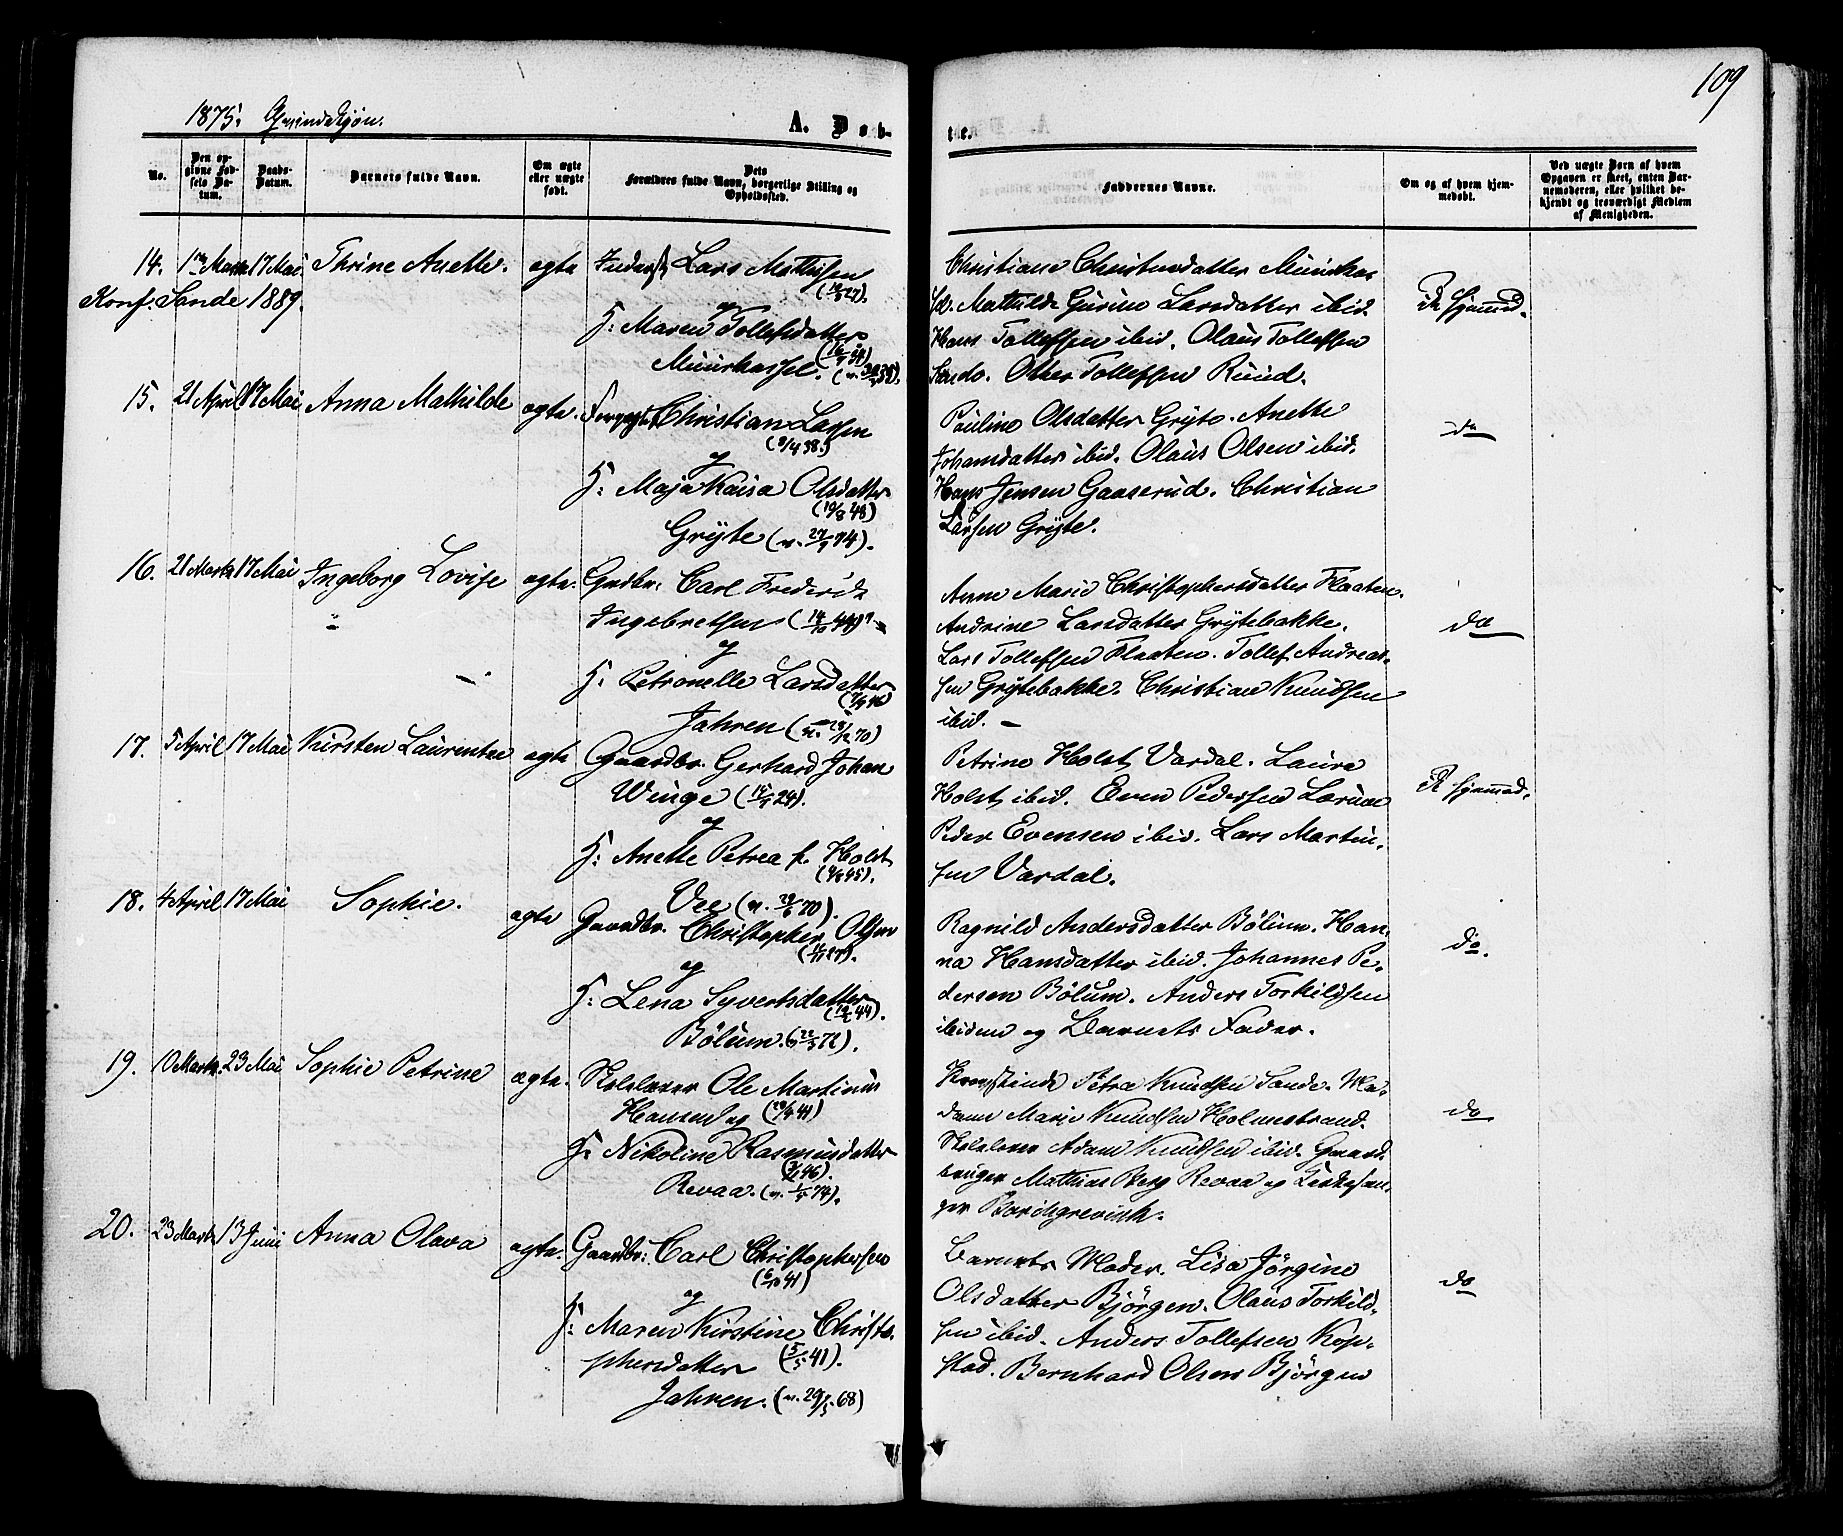 109
1875. Qvindekjøn.
A. Døb-
te.
No.
Den op-
givne Fød-
sels Da-
tum.
Daabs-
Datum.
Barnets fulde Navn.
Om ægte
eller uægte
født.
Dets
Forældres fulde Navn, borgerlige Stilling og
Opholdssted.
Faddernes Navne.
Om og af hvem hjem-
medøbt.
Ved uægte Børn af hvem
Opgaven er skeet, enten Bar-
nemoderen, eller hvilket be-
kjendt og troværdigt Medlem
af Menigheden.
14. Marts 17 Mai. Thrine Anette. ægte Lars Mathisen
Konf. Sande 1889.
og
H: Maren Tollefsdatter
Christiane Christensdatter
Mathilde Gurine Larsdatter ibid.
Hans Tollefsen ibid. Olaus Tollefsen
Sando. Tollefsen Ruud.
hjemmed.
15. 21 April 17 Mai Anna Mathilde ægte. Christian Larsen
(9/4 38.)
og
H: Maja Kaisa Olsdatter
(19/8 48)
Gryte (v. 27/9 74).
Pauline Olsdatter Gryte. Anette
Johansdatter ibid. Olaus Olsen ibid.
Hans Jensen Gaaserud. Christian
Larsen Gryte.
do
16. 21 Marts 17 Mai Ingeborg Lovise ægte. Gaardbr. Carl Frederik
Ingebretsen (14/10 44)
og
H: Petronelle Larsdatter
Jahren (v. 28/12 70)
Anne Marie Christophersdatter Flaaten.
Andrine Larsdatter Grytebakke.
Lars Tollefsen Flaaten. Tollef Andreas-
sen Grytebakke. Christian Knudsen
ibid. —
do
17. 5 April 17 Mai Kirsten Laurentze ægte Gaardbr. Gerhard Johan
Winge (15/9 24).
og
H: Anette Petrea f. Holst
(9/8 45).
Vee (v. 29/6 70).
Petrine Holst Vardal. Laura
Holst ibid. Even Pedersen Lerum
Peder Evensen ibid. Lars Martin-
sen Vardal.
hjemmed.
18. 4 April 17 Mai Sophie. ægte Gaardbr. Christopher Olsen
og
H: Lena Syvertsdatter
Bølum. (v. 22/3 72).
Ragnild Andersdatter Bølum. Han-
na Hansdatter ibid. Johannes Pe-
dersen Bølum. Anders Torkildsen
ibidem og Barnets Fader.
do.
19. 10 Marts. 23 Mai Sophie Petrine ægte. Skolelærer Ole Martinius
Hansen og
H: Nikoline Rasmusdatter
Revaa.
Petra Knudsen Sande. Ma-
dame Marie Knudsen Holmestrand.
Skolelærer Adam Knudsen ibid. Gaard-
bruger Mathias Berg Revaa og Kirkesan-
ger Borchgrevink.
do
20. 23 Marts 13 Juni Anna Olava ægte. Gaardbr: Carl Christophersen
(6/10 41)
og
H: Maren Kirstine Christo-
phersdatter (5/5 41).
Jahren. (v. 29/5. 68)
Barnets Moder. Lisa Jörgine
Olsdatter Björgen. Olaus Torkild-
sen ibid. Anders Tollefsen Kop-
stad. Bernhard Olsen Björgen
do